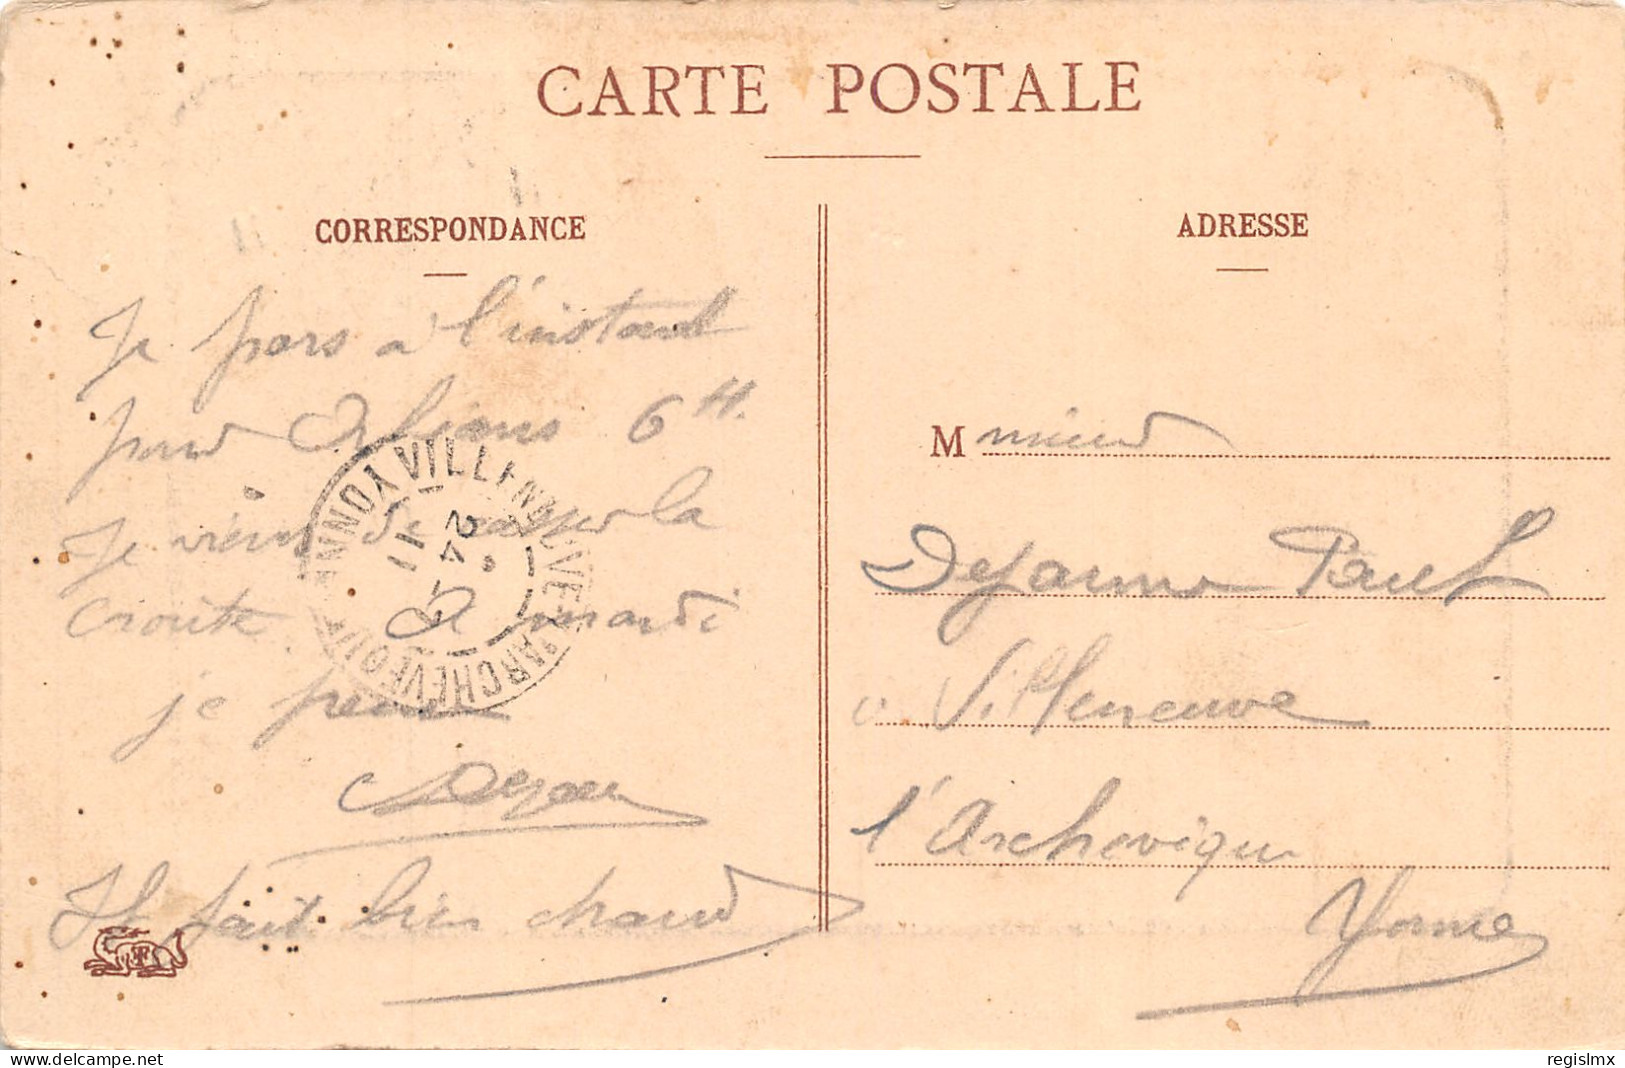 CARTE POSTALE
CORRESPONDANCE
Je pars a l'instant
pour Orléans 6 H.
Je viens de casser la
croûte. A mardi
je pense
Dejean
Il fait bien chaud
VILLENEUVE-L'ARCHEVÊQUE YONNE
24
11
ADRESSE
M
Paul
Villeneuve
l'Archevêque
Yonne
www.delcampe.net
regislmx